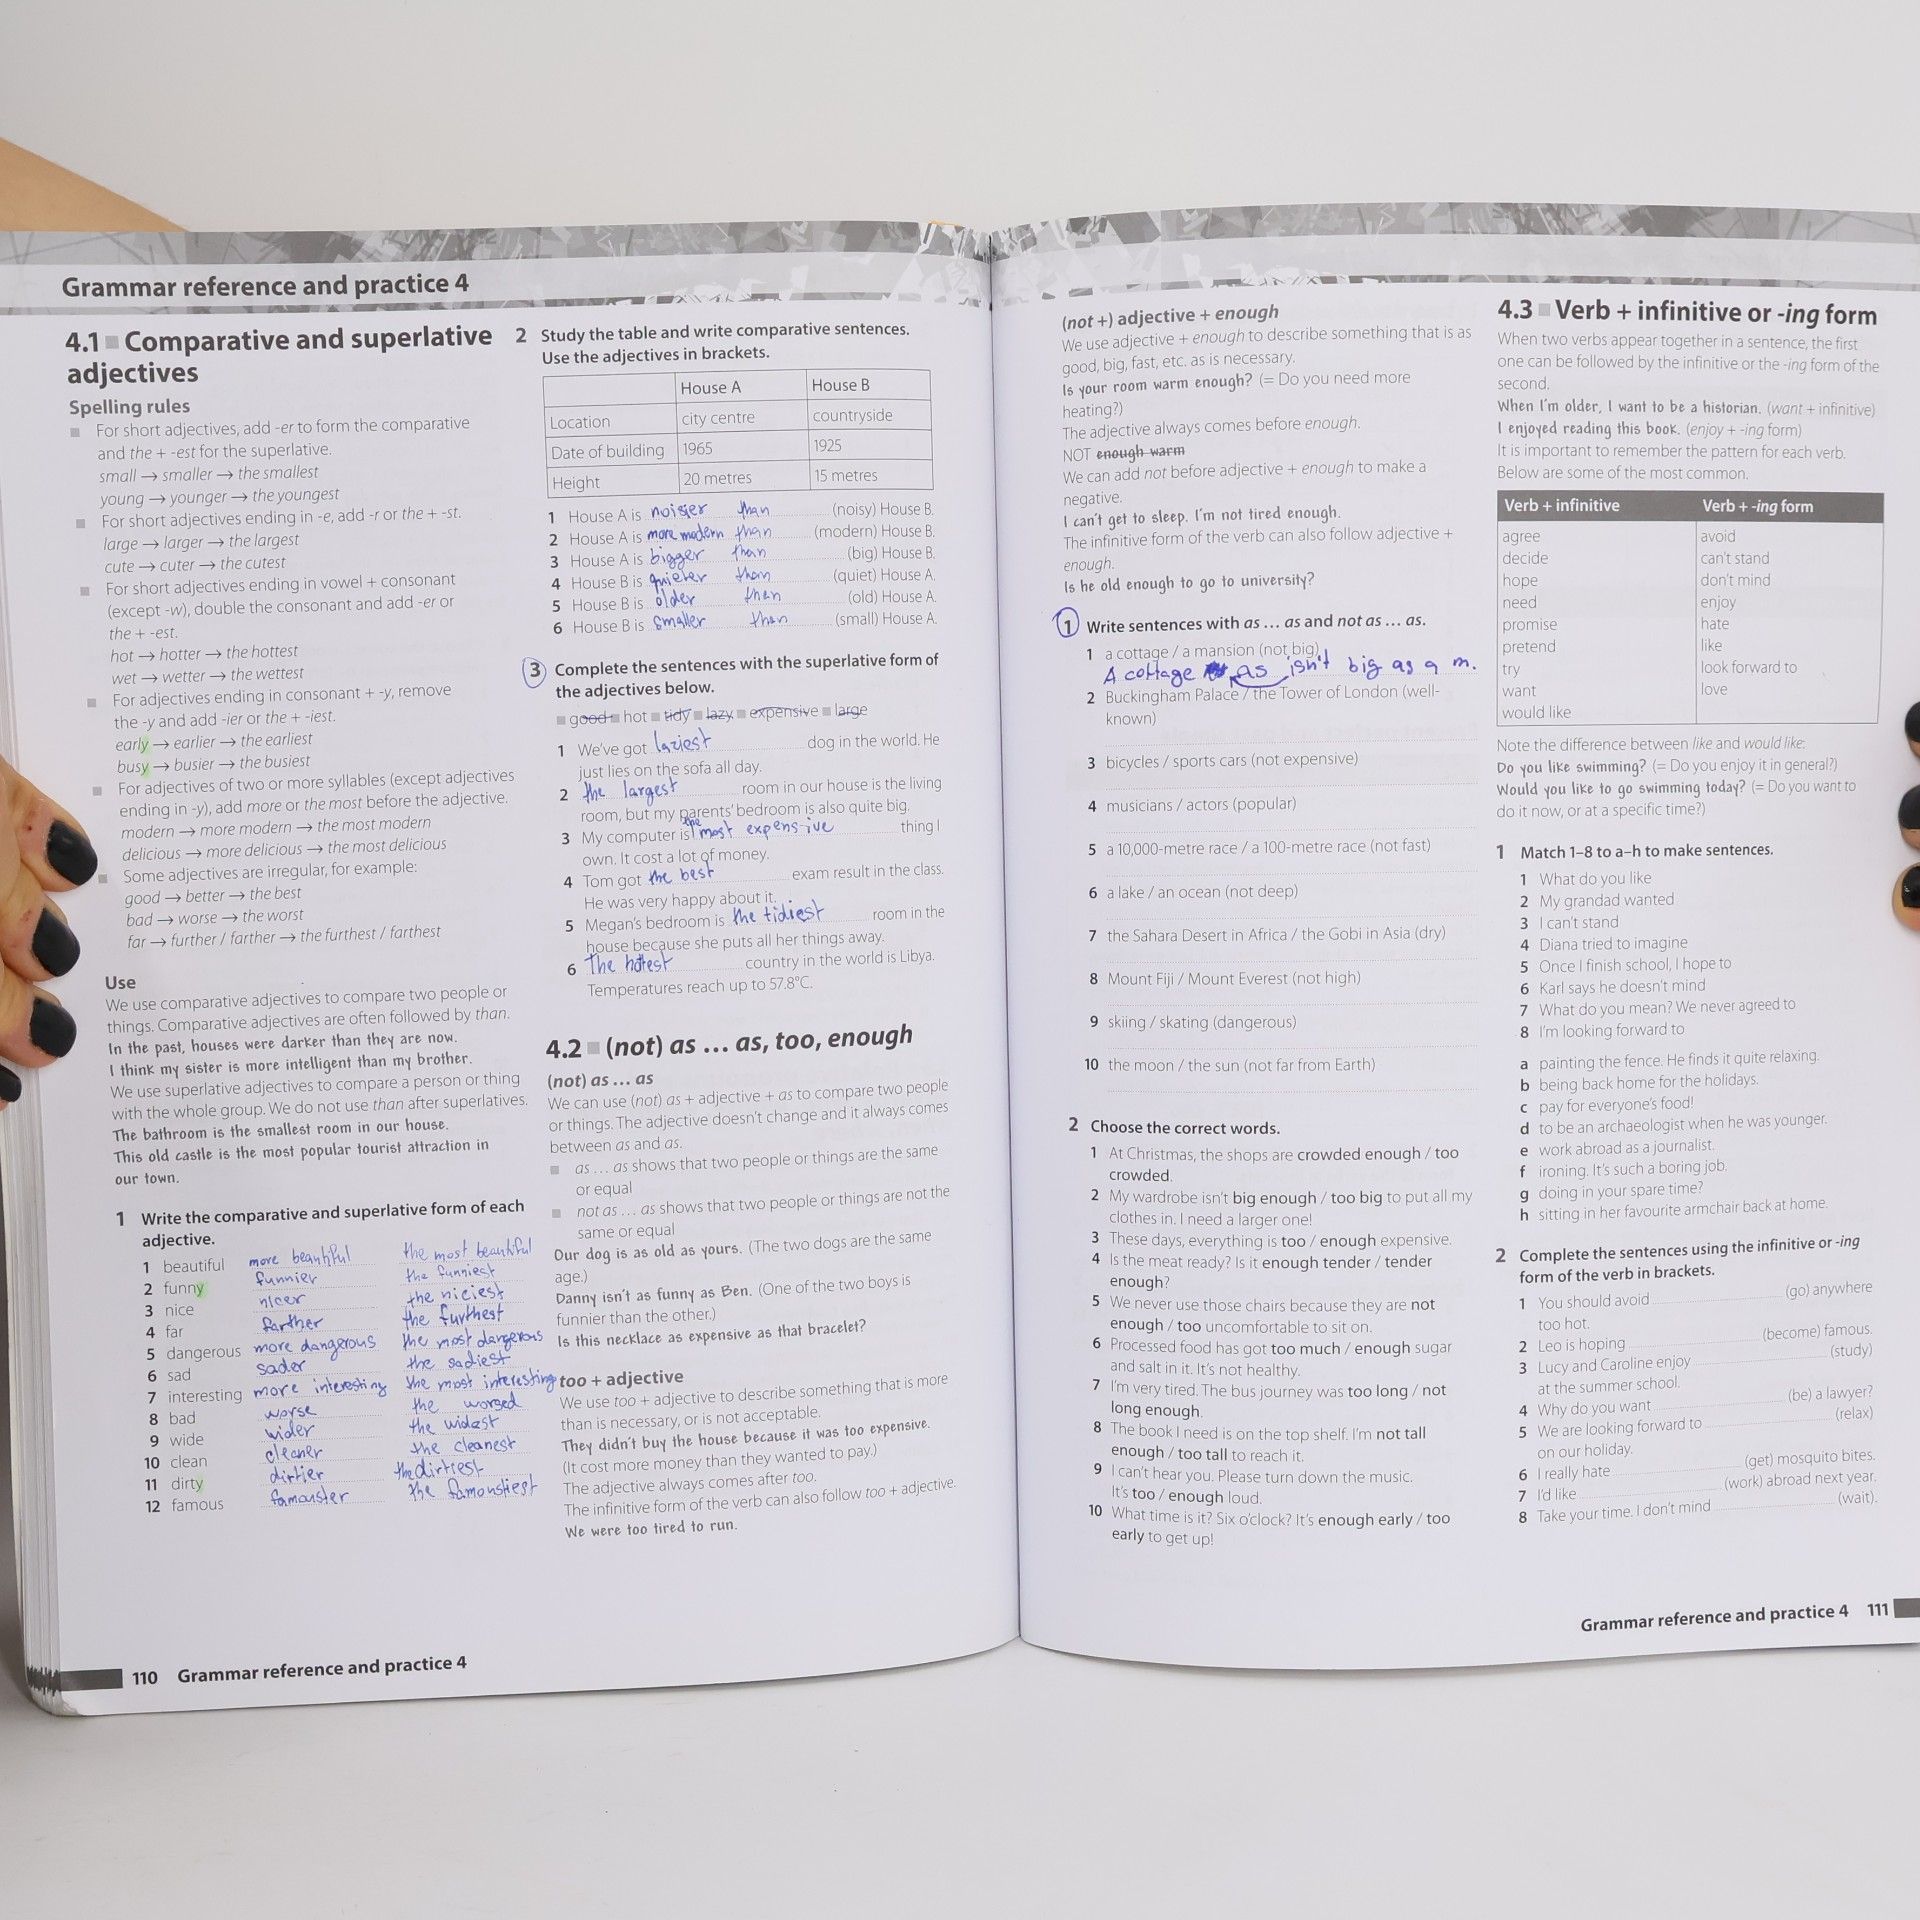 Grammar reference and practice 4
4.1 ■ Comparative and superlative
adjectives
Spelling rules
■ For short adjectives, add -er to form the comparative
and the + -est for the superlative.
small → smaller → the smallest
young → younger → the youngest
■ For short adjectives ending in -e, add -r or the + -st.
large → larger → the largest
cute → cuter → the cutest
■ For short adjectives ending in vowel + consonant
(except -w), double the consonant and add -er or
the + -est.
hot → hotter → the hottest
wet → wetter → the wettest
■ For adjectives ending in consonant + -y, remove
the -y and add -ier or the + -iest.
early → earlier → the earliest
busy → busier → the busiest
■ For adjectives of two or more syllables (except adjectives
ending in -y), add more or the most before the adjective.
modern → more modern → the most modern
delicious → more delicious → the most delicious
■ Some adjectives are irregular, for example:
good → better → the best
bad → worse → the worst
far → further / farther → the furthest / farthest
Use
We use comparative adjectives to compare two people or
things. Comparative adjectives are often followed by than.
In the past, houses were darker than they are now.
I think my sister is more intelligent than my brother.
We use superlative adjectives to compare a person or thing
with the whole group. We do not use than after superlatives.
The bathroom is the smallest room in our house.
This old castle is the most popular tourist attraction in
our town.
1 Write the comparative and superlative form of each
adjective.
1 beautiful more beautiful the most beautiful
2 funny funnier the funniest
3 nice nicer the niciest
4 far farther the furthest
5 dangerous more dangerous the most dangerous
6 sad sader the sadiest
7 interesting more interesting the most interesting
8 bad worse the worsed
9 wide wider the widest
10 clean cleaner the cleanest
11 dirty dirtier the dirtiest
12 famous famouster the famoustiest
110 Grammar reference and practice 4
2 Study the table and write comparative sentences.
Use the adjectives in brackets.
House A House B
Location city centre countryside
Date of building 1965 1925
Height 20 metres 15 metres
1 House A is noisier than (noisy) House B.
2 House A is more modern than (modern) House B.
3 House A is bigger than (big) House B.
4 House B is quieter than (quiet) House A.
5 House B is older than (old) House A.
6 House B is smaller than (small) House A.
3 Complete the sentences with the superlative form of
the adjectives below.
■ good ■ hot ■ tidy ■ lazy ■ expensive ■ large
1 We've got laziest dog in the world. He
just lies on the sofa all day.
2 the largest room in our house is the living
room, but my parents' bedroom is also quite big.
3 My computer is the most expensive thing I
own. It cost a lot of money.
4 Tom got the best exam result in the class.
He was very happy about it.
5 Megan's bedroom is the tidiest room in the
house because she puts all her things away.
6 The hottest country in the world is Libya.
Temperatures reach up to 57.8°C.
4.2 ■ (not) as ... as, too, enough
(not) as ... as
We can use (not) as + adjective + as to compare two people
or things. The adjective doesn't change and it always comes
between as and as.
■ as ... as shows that two people or things are the same
or equal
■ not as ... as shows that two people or things are not the
same or equal
Our dog is as old as yours. (The two dogs are the same
age.)
Danny isn't as funny as Ben. (One of the two boys is
funnier than the other.)
Is this necklace as expensive as that bracelet?
too + adjective
We use too + adjective to describe something that is more
than is necessary, or is not acceptable.
They didn't buy the house because it was too expensive.
(It cost more money than they wanted to pay.)
The adjective always comes after too.
The infinitive form of the verb can also follow too + adjective.
We were too tired to run.
(not +) adjective + enough
We use adjective + enough to describe something that is as
good, big, fast, etc. as is necessary.
Is your room warm enough? (= Do you need more
heating?)
The adjective always comes before enough.
NOT enough warm
We can add not before adjective + enough to make a
negative.
I can't get to sleep. I'm not tired enough.
The infinitive form of the verb can also follow adjective +
enough.
Is he old enough to go to university?
1 Write sentences with as ... as and not as ... as.
1 a cottage / a mansion (not big)
A cottage as isn't big as a m.
2 Buckingham Palace / the Tower of London (well-
known)
3 bicycles / sports cars (not expensive)
4 musicians / actors (popular)
5 a 10,000-metre race / a 100-metre race (not fast)
6 a lake / an ocean (not deep)
7 the Sahara Desert in Africa / the Gobi in Asia (dry)
8 Mount Fiji / Mount Everest (not high)
9 skiing / skating (dangerous)
10 the moon / the sun (not far from Earth)
2 Choose the correct words.
1 At Christmas, the shops are crowded enough / too
crowded.
2 My wardrobe isn't big enough / too big to put all my
clothes in. I need a larger one!
3 These days, everything is too / enough expensive.
4 Is the meat ready? Is it enough tender / tender
enough?
5 We never use those chairs because they are not
enough / too uncomfortable to sit on.
6 Processed food has got too much / enough sugar
and salt in it. It's not healthy.
7 I'm very tired. The bus journey was too long / not
long enough.
8 The book I need is on the top shelf. I'm not tall
enough / too tall to reach it.
9 I can't hear you. Please turn down the music.
It's too / enough loud.
10 What time is it? Six o'clock? It's enough early / too
early to get up!
4.3 ■ Verb + infinitive or -ing form
When two verbs appear together in a sentence, the first
one can be followed by the infinitive or the -ing form of the
second.
When I'm older, I want to be a historian. (want + infinitive)
I enjoyed reading this book. (enjoy + -ing form)
It is important to remember the pattern for each verb.
Below are some of the most common.
Verb + infinitive Verb + -ing form
agree avoid
decide can't stand
hope don't mind
need enjoy
promise hate
pretend like
try look forward to
want love
would like
Note the difference between like and would like:
Do you like swimming? (= Do you enjoy it in general?)
Would you like to go swimming today? (= Do you want to
do it now, or at a specific time?)
1 Match 1–8 to a–h to make sentences.
1 What do you like
2 My grandad wanted
3 I can't stand
4 Diana tried to imagine
5 Once I finish school, I hope to
6 Karl says he doesn't mind
7 What do you mean? We never agreed to
8 I'm looking forward to
a painting the fence. He finds it quite relaxing.
b being back home for the holidays.
c pay for everyone's food!
d to be an archaeologist when he was younger.
e work abroad as a journalist.
f ironing. It's such a boring job.
g doing in your spare time?
h sitting in her favourite armchair back at home.
2 Complete the sentences using the infinitive or -ing
form of the verb in brackets.
1 You should avoid (go) anywhere
too hot.
2 Leo is hoping (become) famous.
3 Lucy and Caroline enjoy (study)
at the summer school.
4 Why do you want (be) a lawyer?
5 We are looking forward to (relax)
on our holiday.
6 I really hate (get) mosquito bites.
7 I'd like (work) abroad next year.
8 Take your time. I don't mind (wait).
Grammar reference and practice 4 111